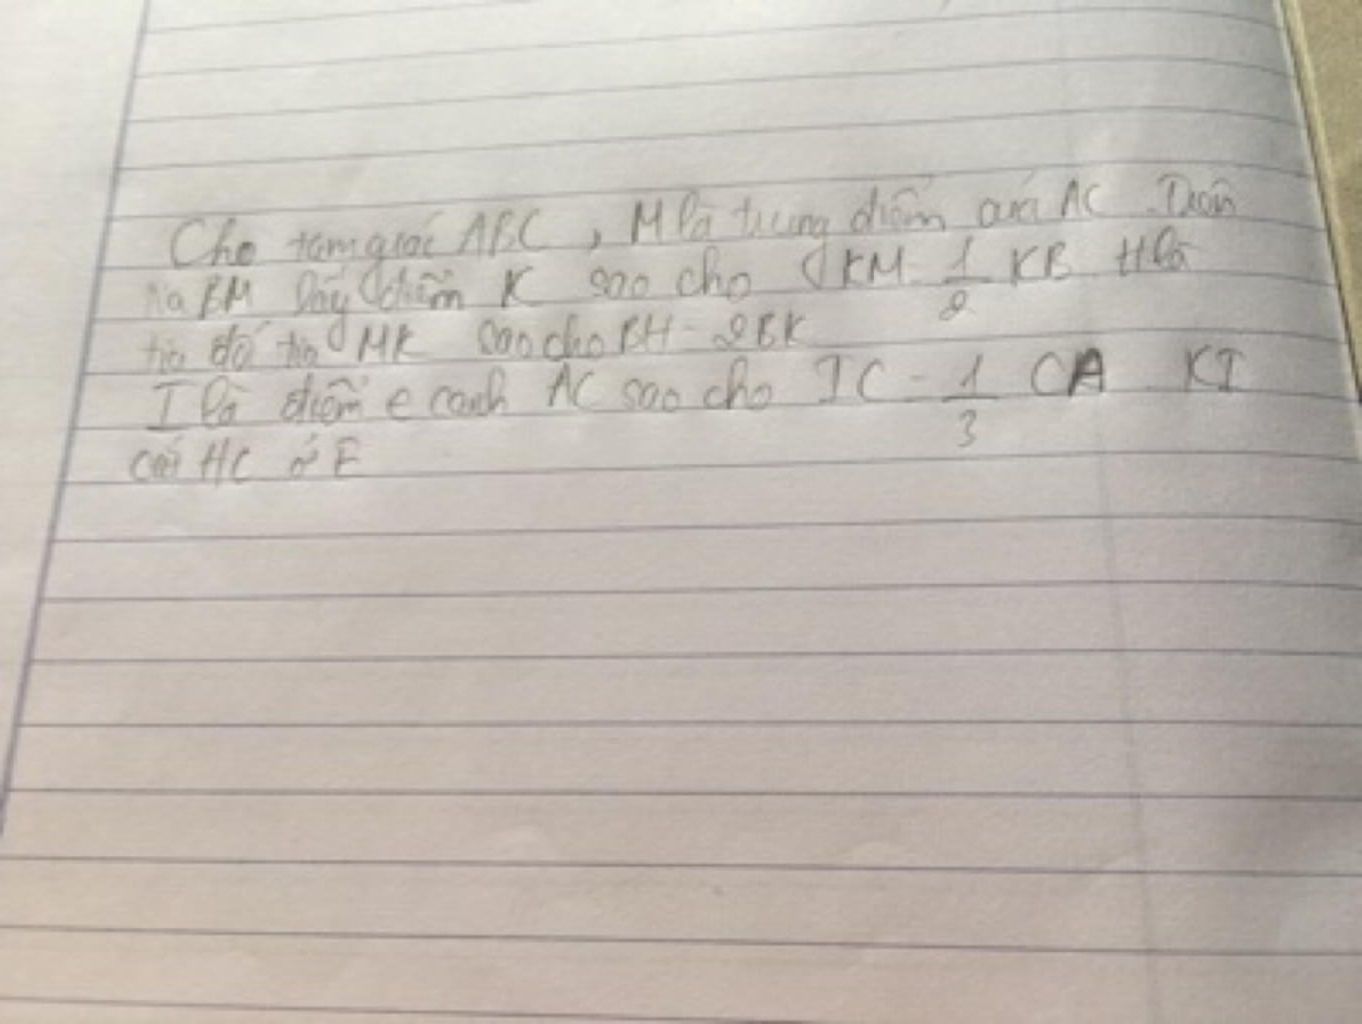 Cho tam giác ABC, M là trung điểm của AC. Trên
tia BM lấy điểm K sao cho KM = 1/2 KB H là
tia đối tia MK sao cho BH = 2BK
I là điểm e cạnh AC sao cho IC = 1/3 CA KI
cắt HC ở E